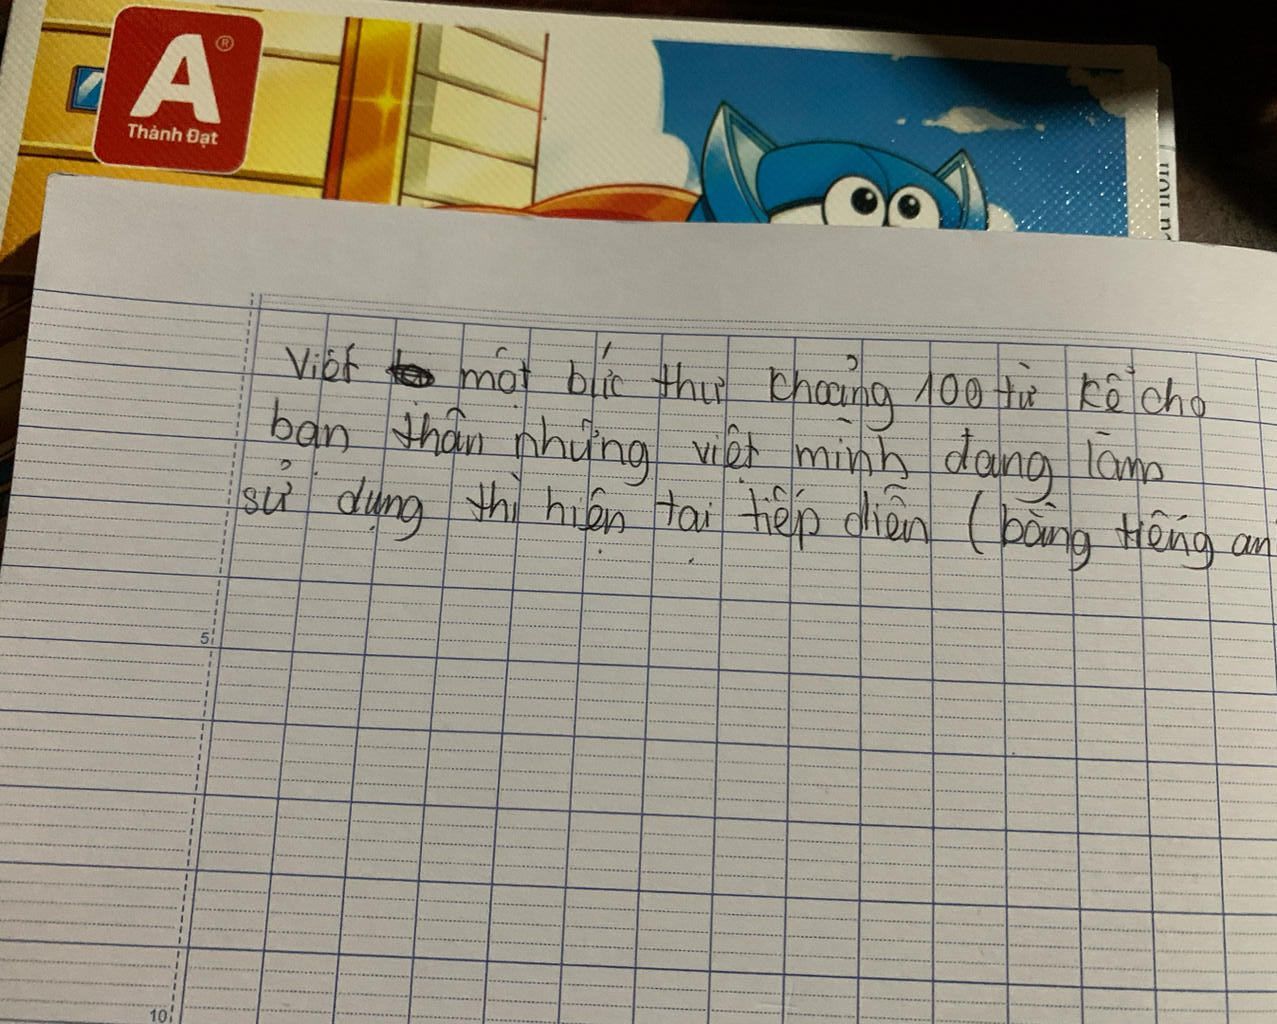 A ®
Thành Đạt
Viết một bức thư khoảng 100 từ kể cho
bạn thân những việt mình đang làm
sử dụng thì hiện tại tiếp diễn (bằng tiếng an
5
10